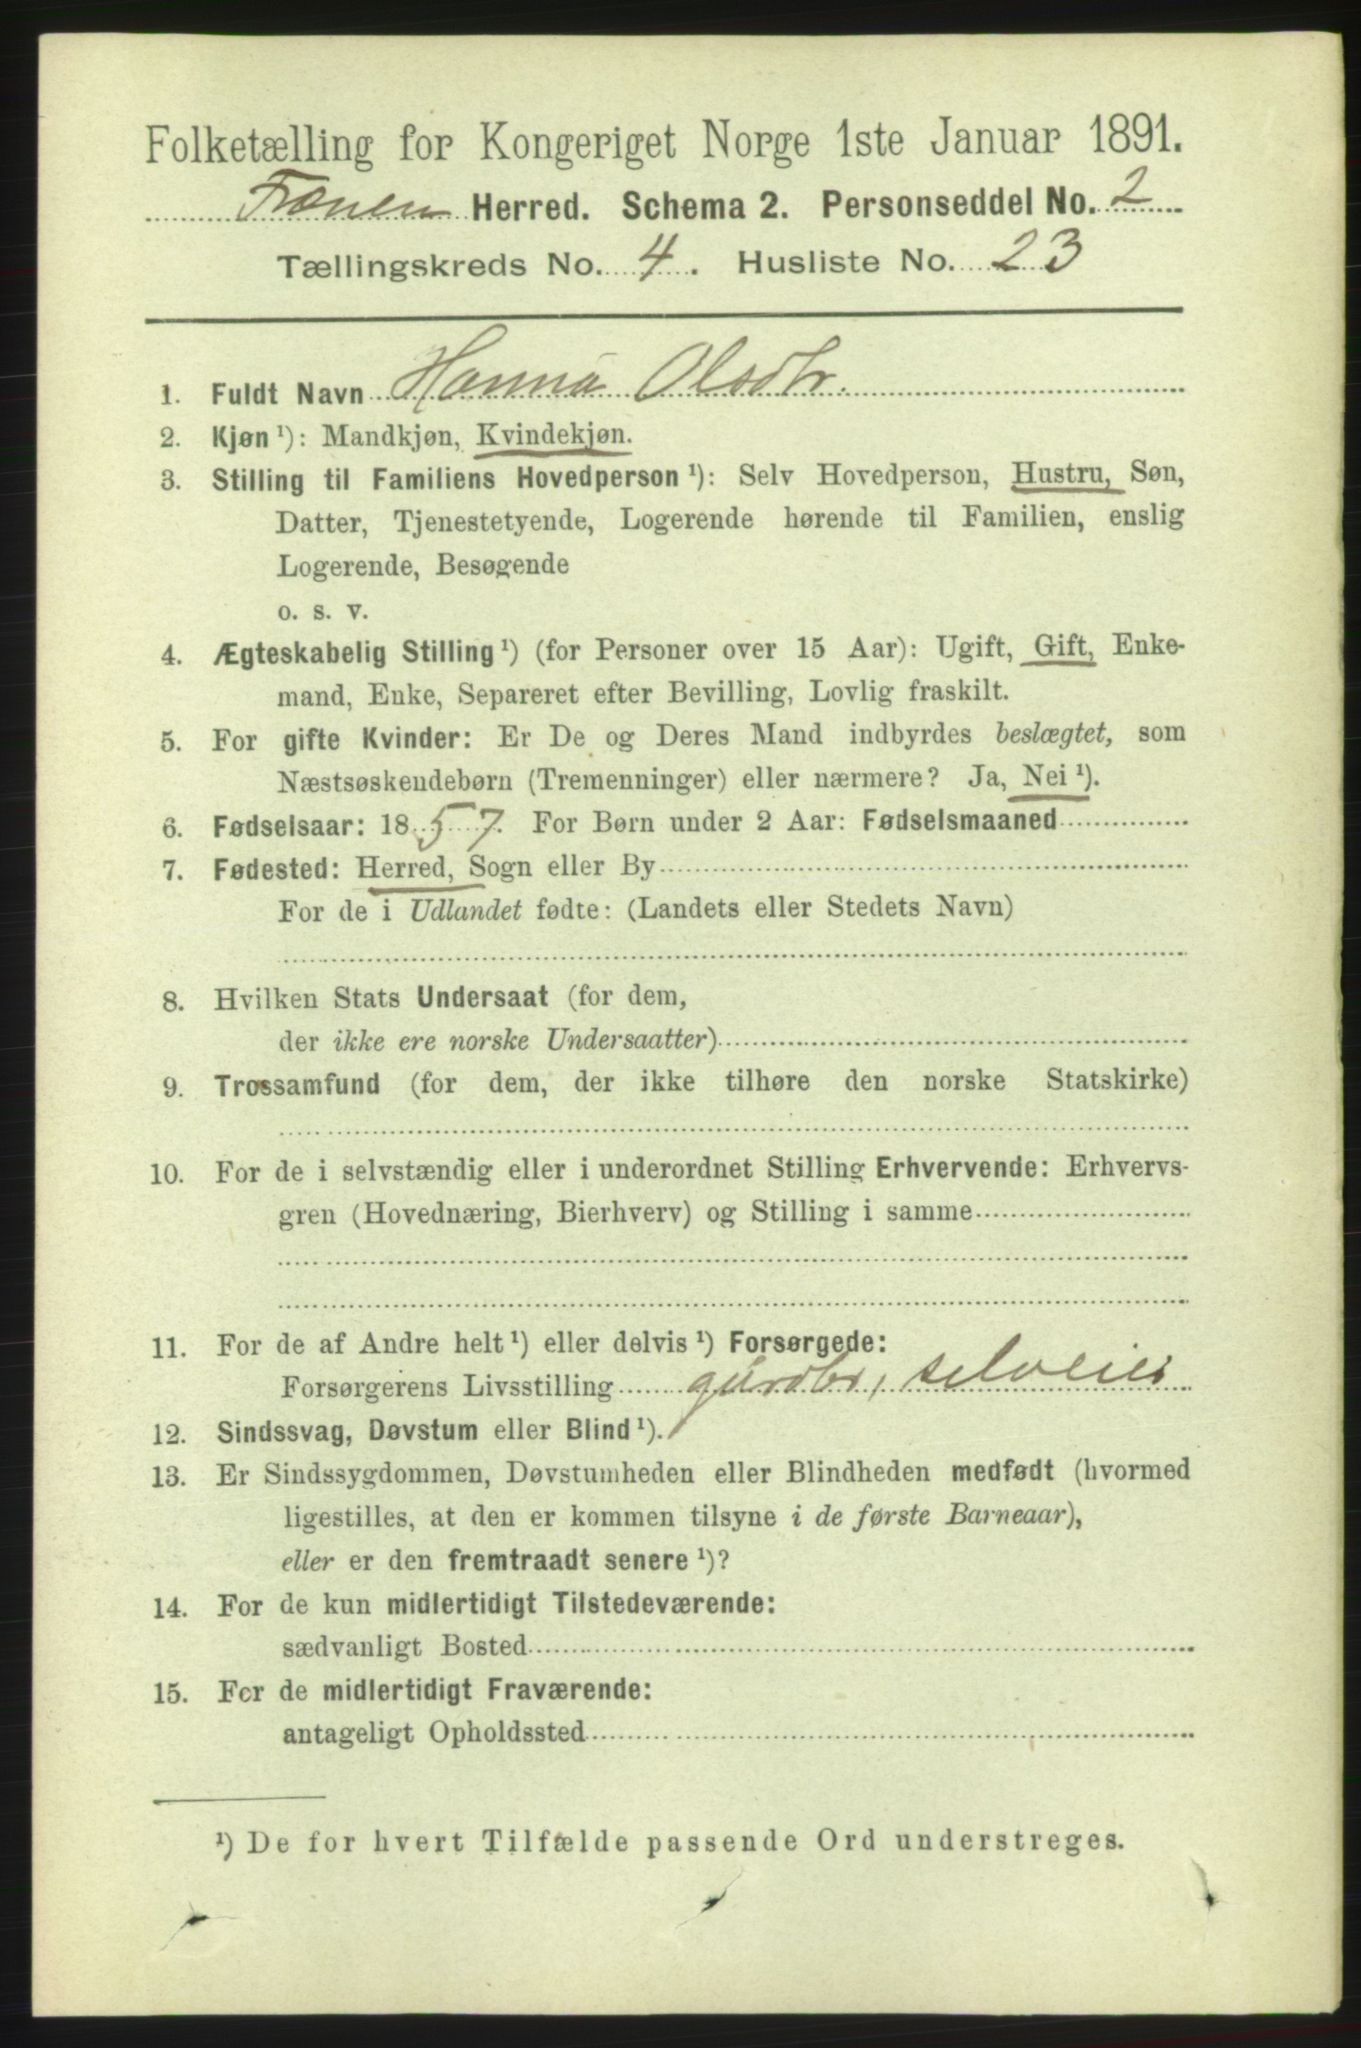 Folketælling for Kongeriget Norge 1ste Januar 1891.
Frænen Herred. Schema 2. Personseddel No. 2
Tællingskreds No. 4. Husliste No. 23
1. Fuldt Navn Hanna Olsdtr.
2. Kjøn ¹): Mandkjøn, Kvindekjøn.
3. Stilling til Familiens Hovedperson ¹): Selv Hovedperson, Hustru, Søn,
Datter, Tjenestetyende, Logerende hørende til Familien, enslig
Logerende, Besøgende
o. s. v.
4. Ægteskabelig Stilling ¹) (for Personer over 15 Aar): Ugift, Gift, Enke-
mand, Enke, Separeret efter Bevilling, Lovlig fraskilt.
5. For gifte Kvinder: Er De og Deres Mand indbyrdes beslægtet, som
Næstsøskendebørn (Tremenninger) eller nærmere? Ja, Nei ¹).
6. Fødselsaar: 1857. For Børn under 2 Aar: Fødselsmaaned
7. Fødested: Herred, Sogn eller By
For de i Udlandet fødte: (Landets eller Stedets Navn)
8. Hvilken Stats Undersaat (for dem,
der ikke ere norske Undersaatter)
9. Trossamfund (for dem, der ikke tilhøre den norske Statskirke)
10. For de i selvstændig eller i underordnet Stilling Erhvervende: Erhvervs-
gren (Hovednæring, Bierhverv) og Stilling i samme
11. For de af Andre helt ¹) eller delvis ¹) Forsørgede:
Forsørgerens Livsstilling gardbr, selveier
12. Sindssvag, Døvstum eller Blind ¹).
13. Er Sindssygdommen, Døvstumheden eller Blindheden medfødt (hvormed
ligestilles, at den er kommen tilsyne i de første Barneaar),
eller er den fremtraadt senere ¹)?
14. For de kun midlertidigt Tilstedeværende:
sædvanligt Bosted
15. For de midlertidigt Fraværende:
antageligt Opholdssted
¹) De for hvert Tilfælde passende Ord understreges.